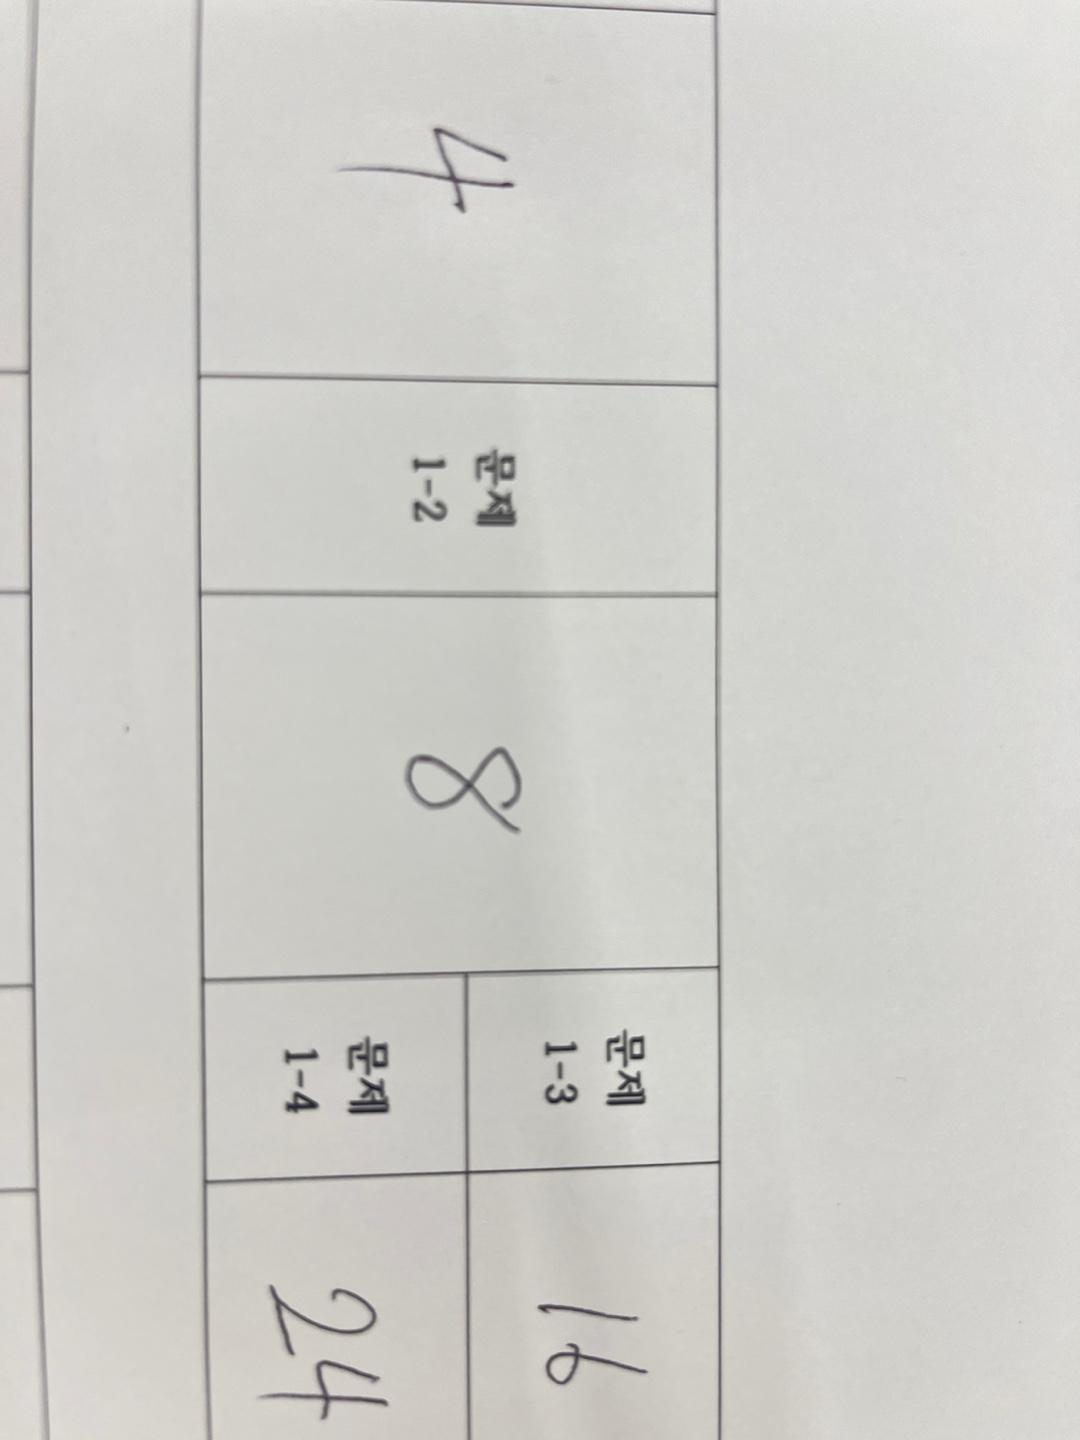 4
문제
1-2
8
문제
1-3
16
문제
1-4
24